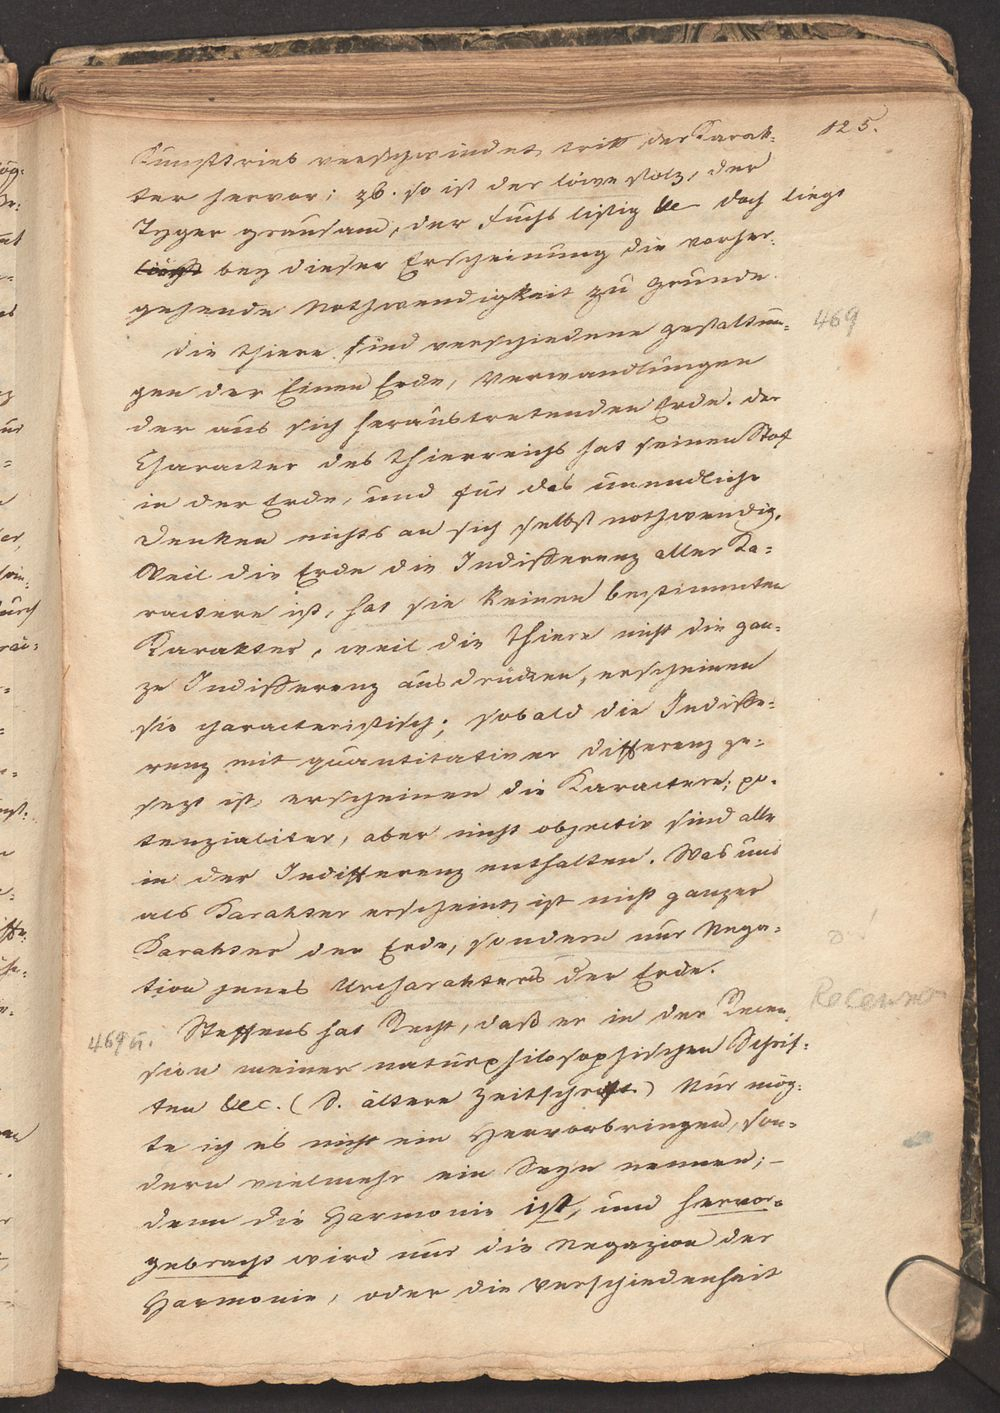 125.
Kunsttrieb verschwindet, tritt der Karak-
ter hervor; zb. so ist der löwe stolz, der
Tyger grausam, der fuchs listig &c doch liegt
bey dieser Erscheinung die vorher-
gehende Nothwendigkeit zu Grunde.
469
die thiere sind verschiedene gestaltun-
gen der Einen Erde, Verwandlungen
der aus sich heraustretenden Erde. der
Character des thierreichs hat seinen Stof
in der Erde, und für das unendliche
denken nichts an sich selbst nothwendig.
Weil die Erde die Indifferenz aller Ka-
ractere ist, hat sie keinen bestimmten
Karakter, weil die thiere nicht die gan-
ze Indifferenz ausdrücken, erscheinen
sie characteristisch; sobald die Indiffe-
renz mit quantitativer differenz ge-
sezt ist, erscheinen die Karactere; po-
tenzialiter, aber nicht objectiv sind alle
in der Indifferenz enthalten. Was uns
als Karakter erscheint, ist nicht ganzer
Karakter der Erde, sondern nur Nega-
tion jenes Urcharakters der Erde.
469a. Steffens hat Recht, daß er in der Recen
sion meiner naturphilosophischen Schrif-
ten &c. (S. ältere Zeitschrift) Nur mög-
te ich es nicht ein Hervorbringen, son-
dern vielmehr ein Seyn nennen; –
denn die Harmonie ist, und hervor-
gebracht wird nur die Negazion der
Harmonie, oder die Verschiedenheit